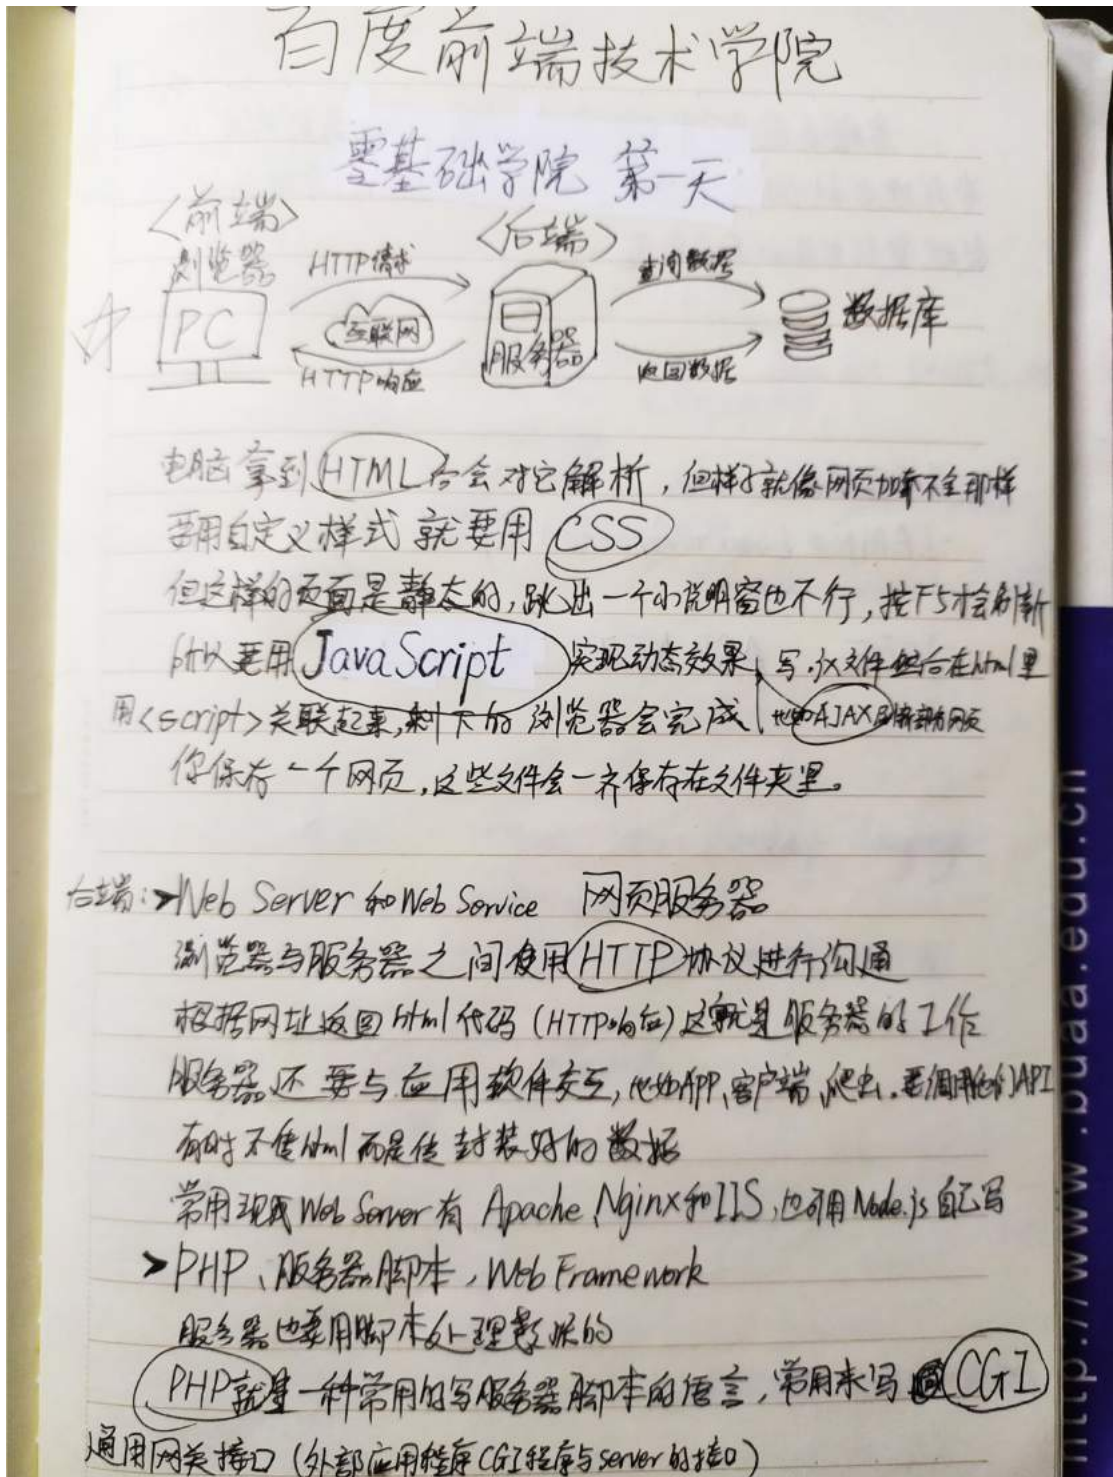 百度前端技术学院
零基础学院 第一天
<前端>
浏览器
<后端>
HTTP请求
查询数据
PC
互联网
服务器
数据库
HTTP响应
返回数据
电脑拿到HTML后会对它解析，但样子就像网页加载不全那样
要用自定义样式 就要用 CSS
但这样的页面是静态的，跳出一个小说明窗也不行，按F5才会刷新
所以要用JavaScript 实现动态效果，写.js文件 在html里
用<script>关联起来，剩下的浏览器会完成 比如AJAX刷新部分网页
你保存一个网页，这些文件会一齐保存在文件夹里。
后端：>Web Server 和Web Service 网页服务器
浏览器与服务器之间使用HTTP协议进行沟通
根据网址返回html代码（HTTP响应）这就是服务器的工作
服务器还要与应用软件交互，比如APP、客户端、爬虫。要调用他们API
有时不传html而是传封装好的数据
常用现成Web Server有 Apache、Nginx和IIS，也可用Node.js自己写
>PHP、服务器脚本，Web Framework
服务器也要用脚本处理数据的
PHP就是一种常用的写服务器脚本的语言，常用来写 CGI
通用网关接口（外部应用程序CGI程序与server的接口）
http://www.buaa.edu.cn